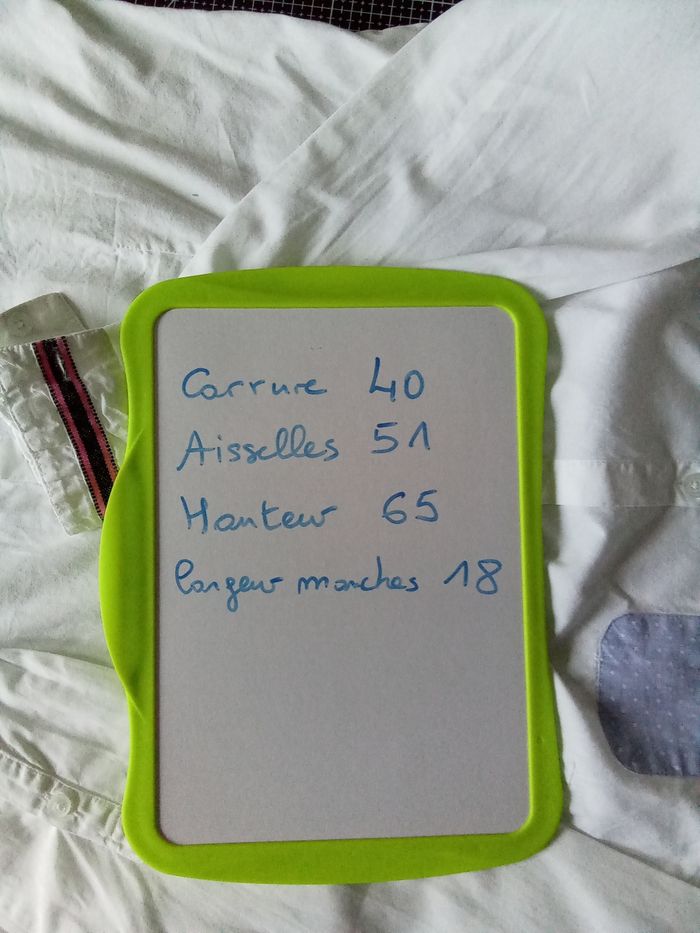 Carrure 40
Aisselles 51
Hauteur 65
largeur manches 18